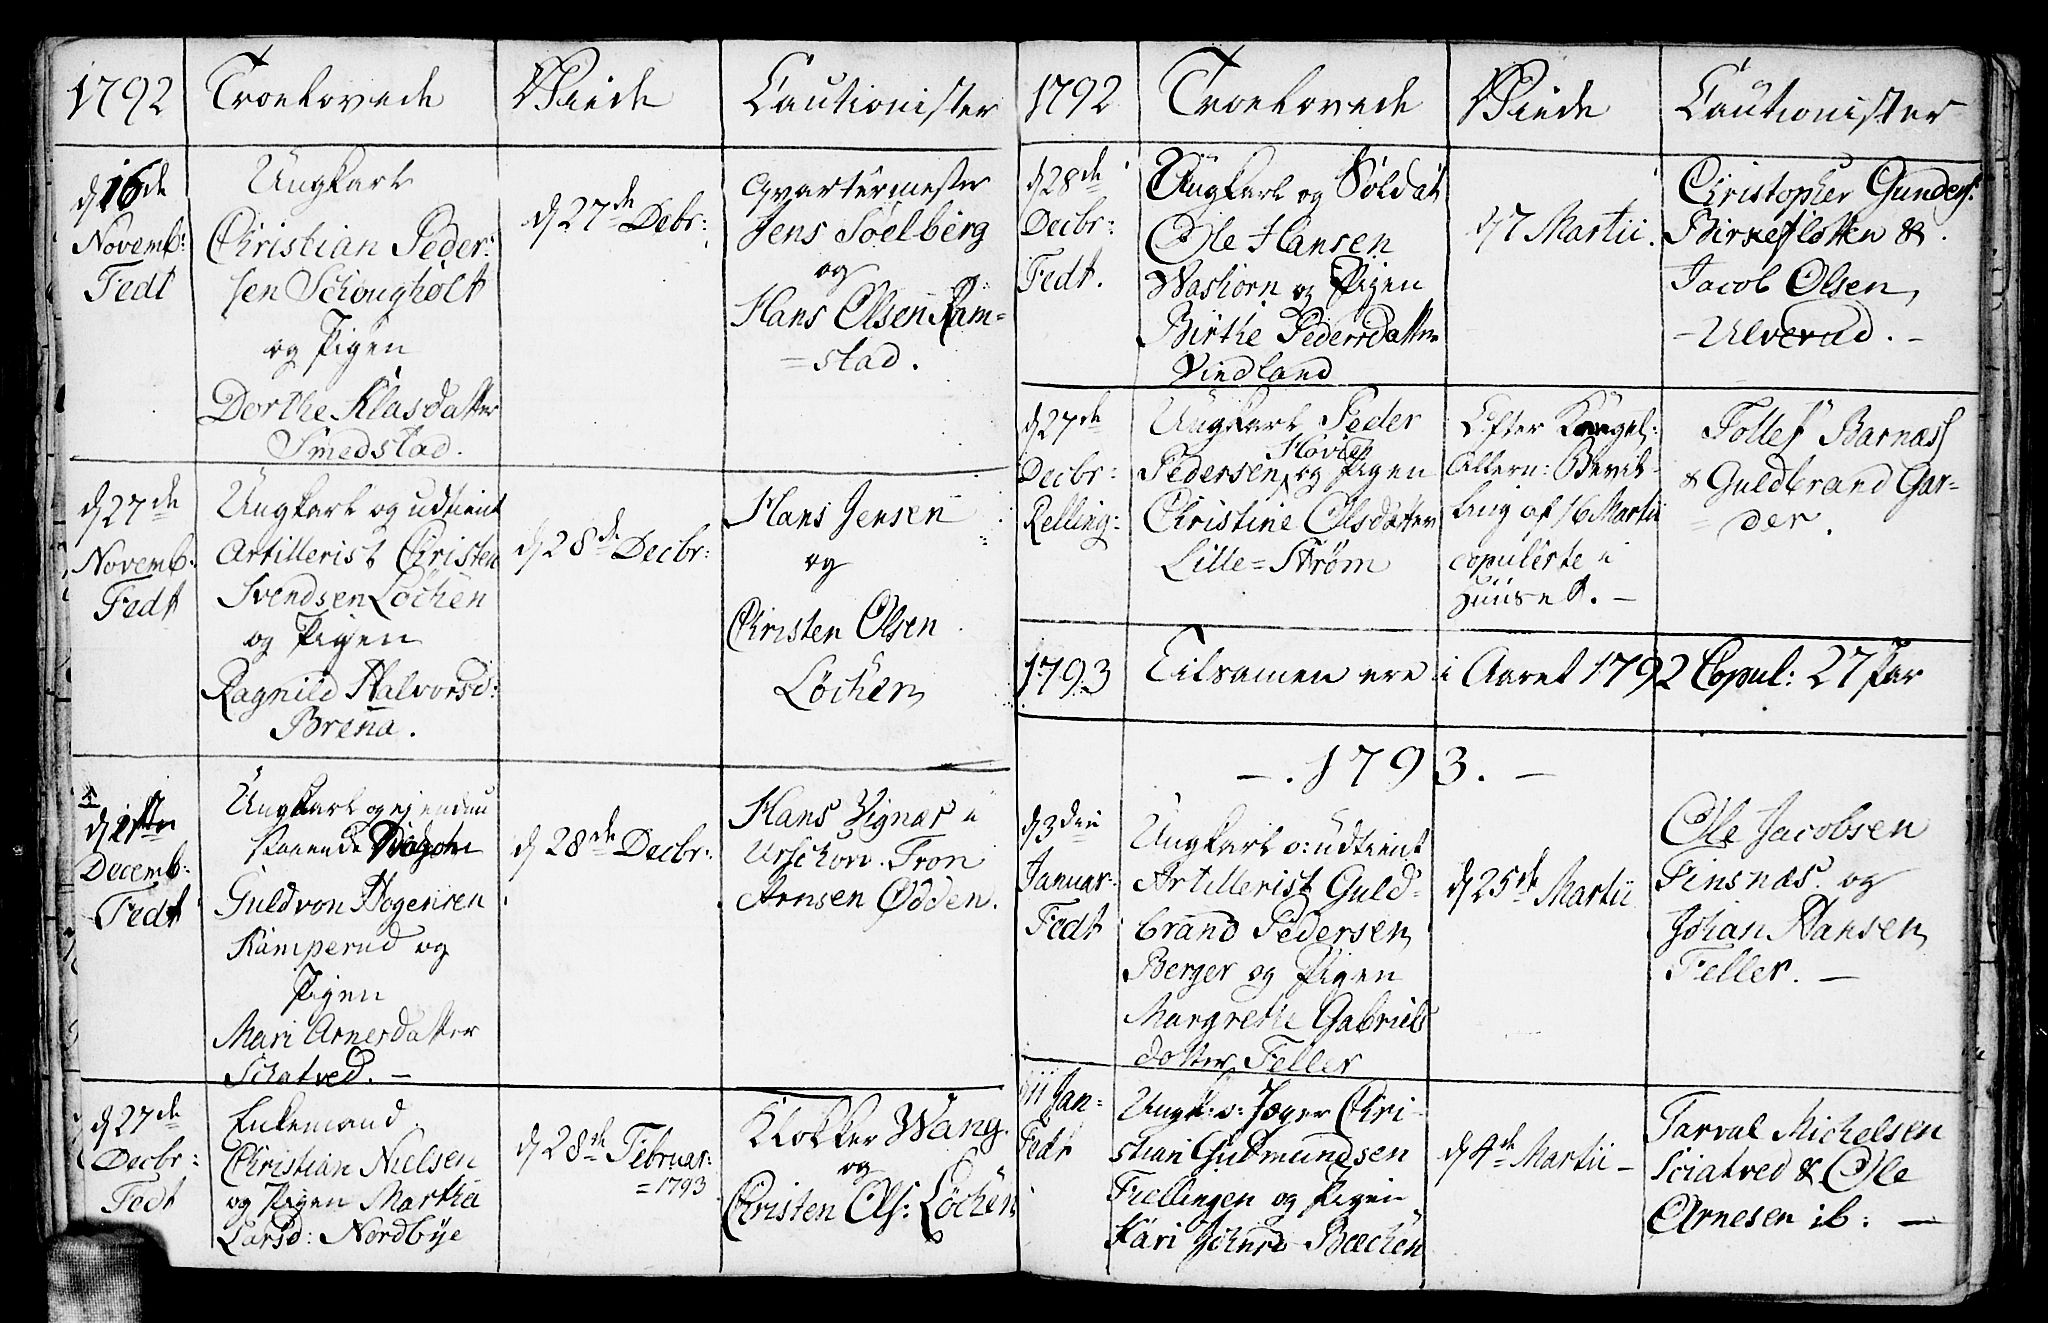 1792
Troelovede
Viede
Cautionister
d 16de
Novemb:
Fedt
Ungkarl
Christian Peder-
sen Schougholt
og Pigen
Dorthe Klasdatter
Smedstad.
d 27de Debr:
Qvartermester
Jens Soelberg
og
Hans Olsen Ram=
=stad.
d 27de
Novemb:
Fedt
Ungkarl og udtient
Artillerist Christen
Svendsen Löchen
og Pigen
Ragnild Halvorsd:
Brena.
d 28de Decbr:
Hans Jensen
og
Christen Olsen
Löchen
Decemb:
Fedt
Ungkarl og ejendnu
staaende Dragon
Guldvon Hogensen
Kamperud og
Pigen
Mari Arnesdatter
Sciatved. —
d 28de Decbr:
Hans Vignæs i
Urschou. Tron
Arnsen Ødden.
d 27de
Decbr:
Fedt
Enkemand
Christian Nielsen
og Pigen Marthe
Larsd: Nordbÿe
d 28de Februar:
=1793
Klokker Wang
og
Christen Ols: Löchen
1792
Troelovede
Viede
Cautionister
d 28de
Decbr:
Fedt.
Ungkarl og Soldat
Ole Hansen
Washorn og Pigen
Birthe Pedersdatter
Vindland
d 7 Martii.
Christopher Gunders:
Birkefloten &
Jacob Olsen
- Ulverud. -
d 27de
Decbr:
Relling:
Ungkarl Peder
Høvien
Pedersen, og Pigen
Christine Olsdatter
Lille=Strøm
Efter Kongel:
Allern: Bevil-
ling af 16 Martii
copulerte i
Huuset. —
Tollef Barnæss
& Guldbrand Gar=
= der.
1793
Tilsamen ere i Aaret 1792 Copul: 27 Par
— . 1793. —
d 3die
Januar:
Fedt
Ungkarl o: udtient
Artillerist Guld-
brand Pedersen
Berger og Pigen
Margrethe Gabriels
datter Feller
d 25de Martii
Ole Jacobsen
Finsnæs og
Johan Hansen
Feller. —
d 11 Jan-
Fedt
Ungk: o: Jæger Chri-
stian Gudmundsen
Frellingen og Pigen
Kari Johnsd Bæchen
d 4de Martii —
Tarval Michelsen
Sciatved & Ole
Arnesen ib: —